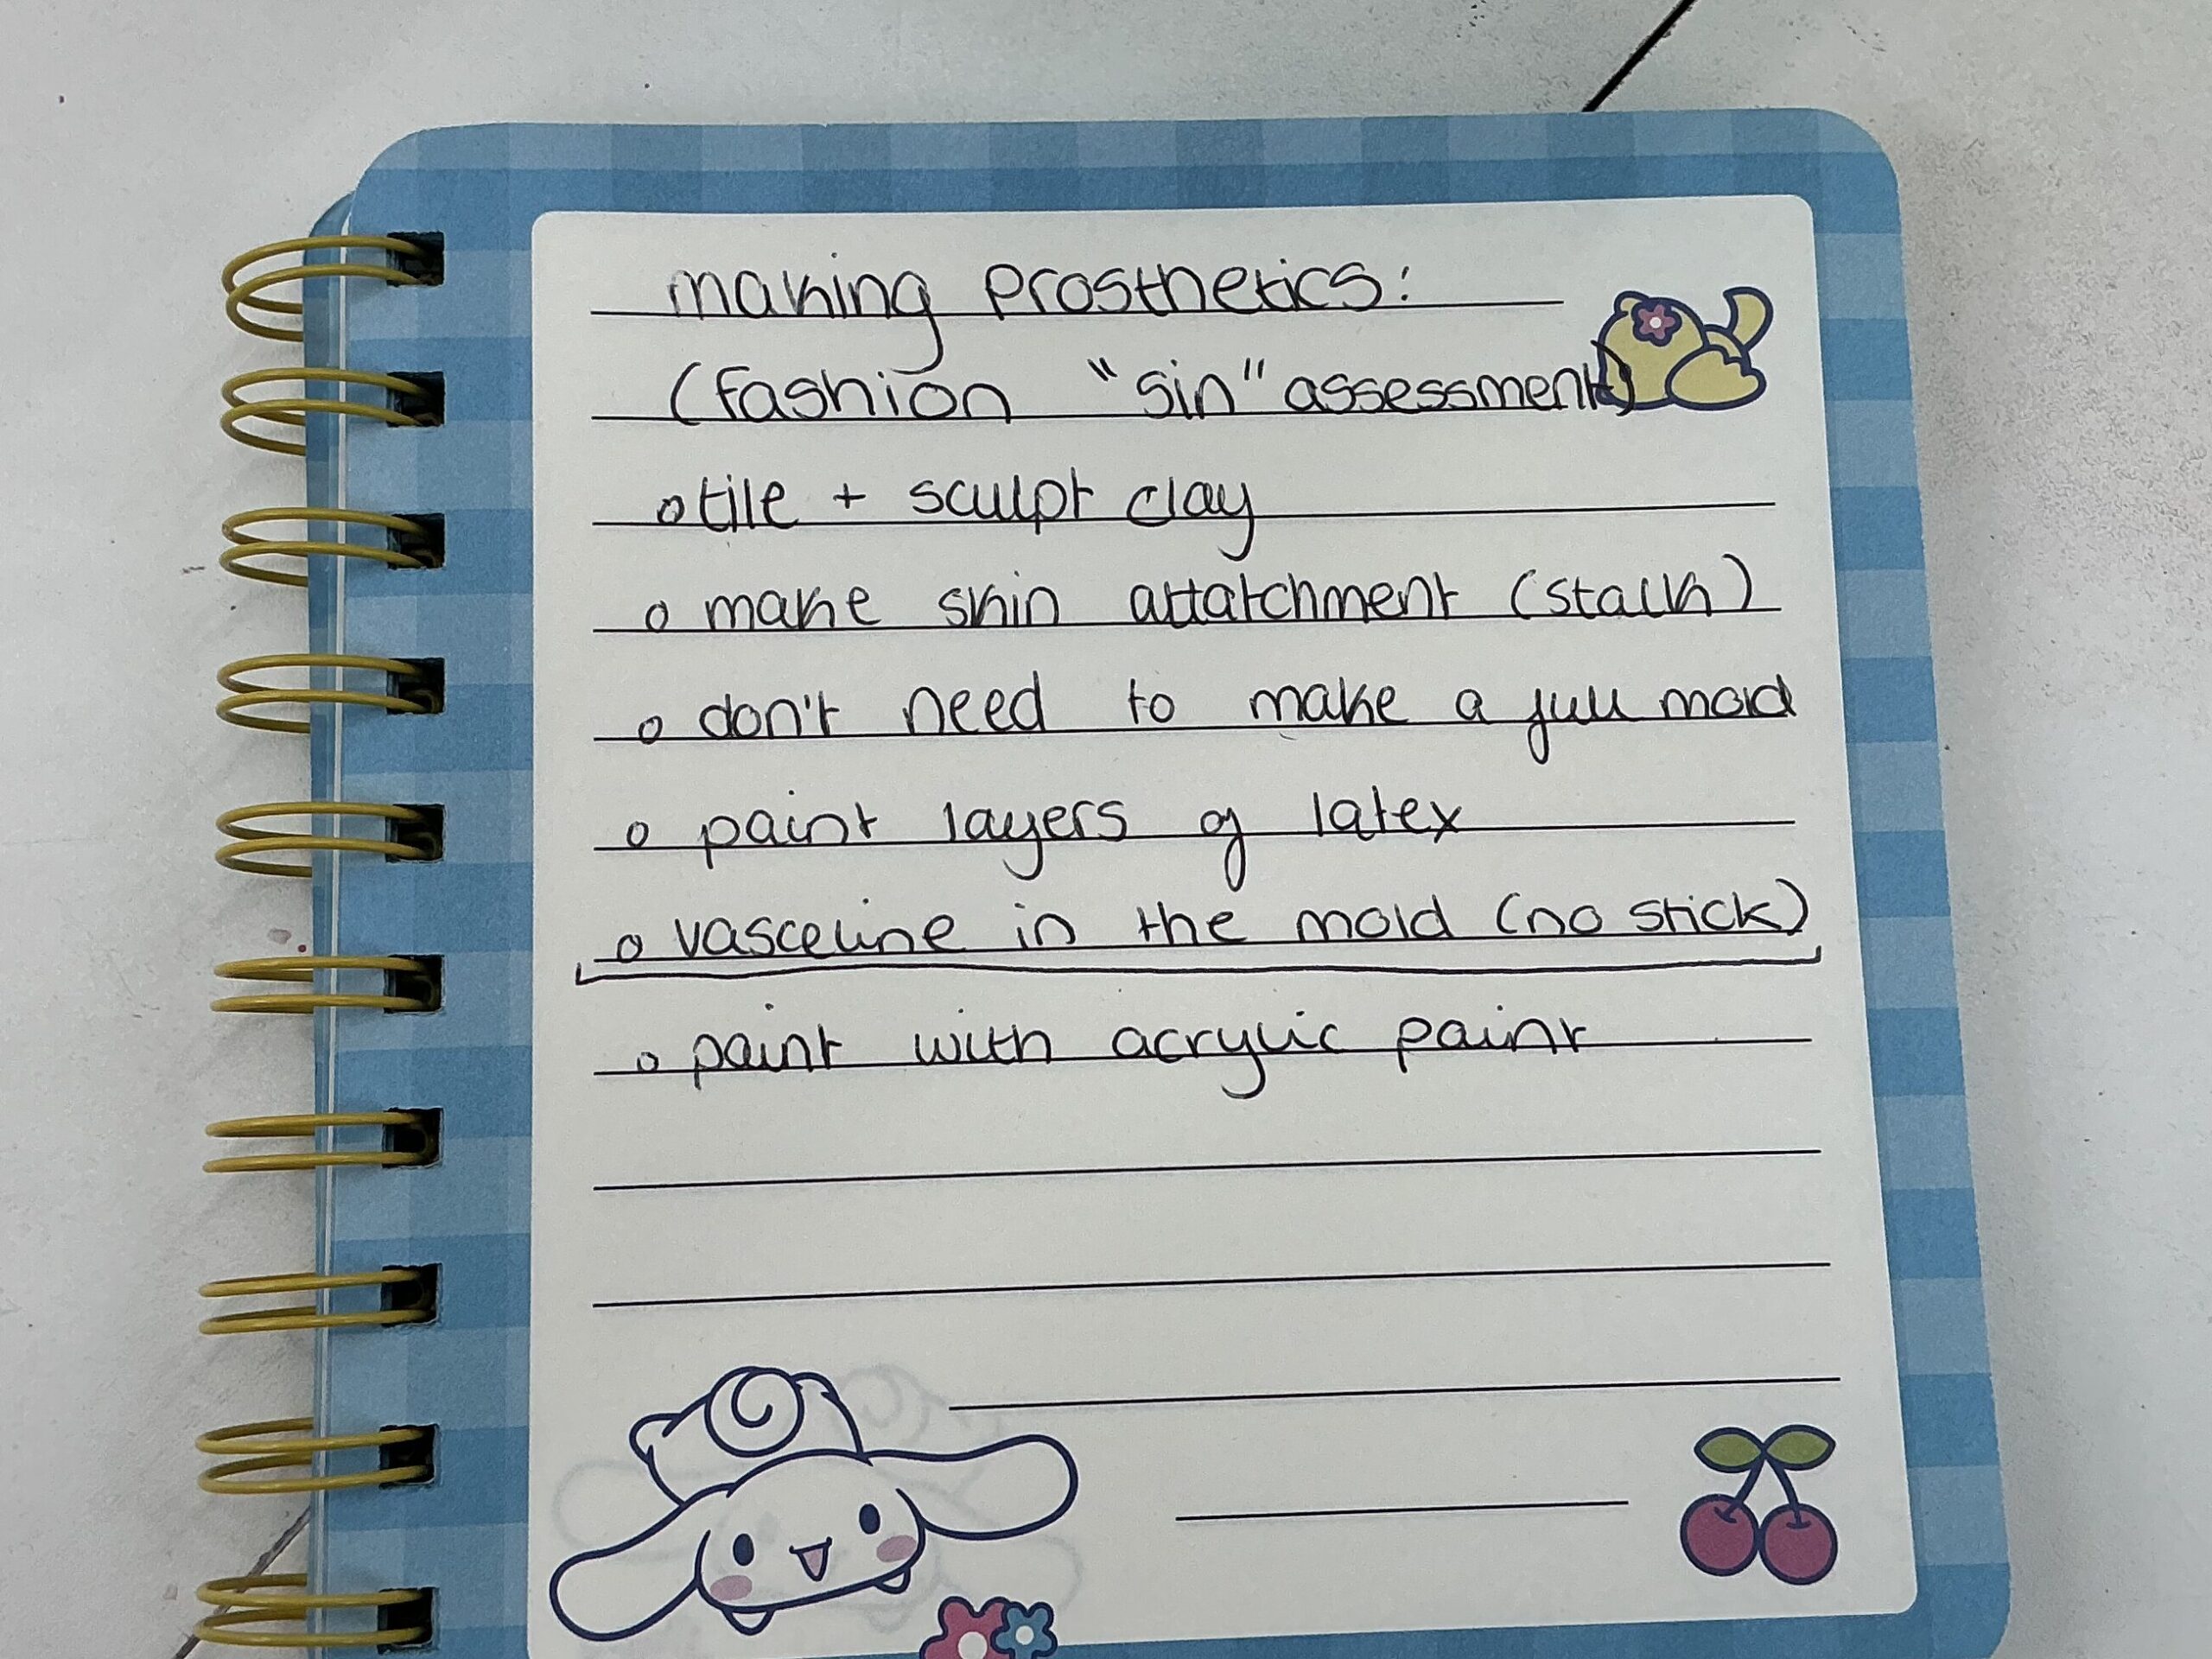 making prosthetics:
(fashion "sin" assessment)
o tile + sculpt clay
o make skin attatchment (stalk)
o don't need to make a full mold
o paint layers of latex
o vasceline in the mold (no stick)
o paint with acrylic paint